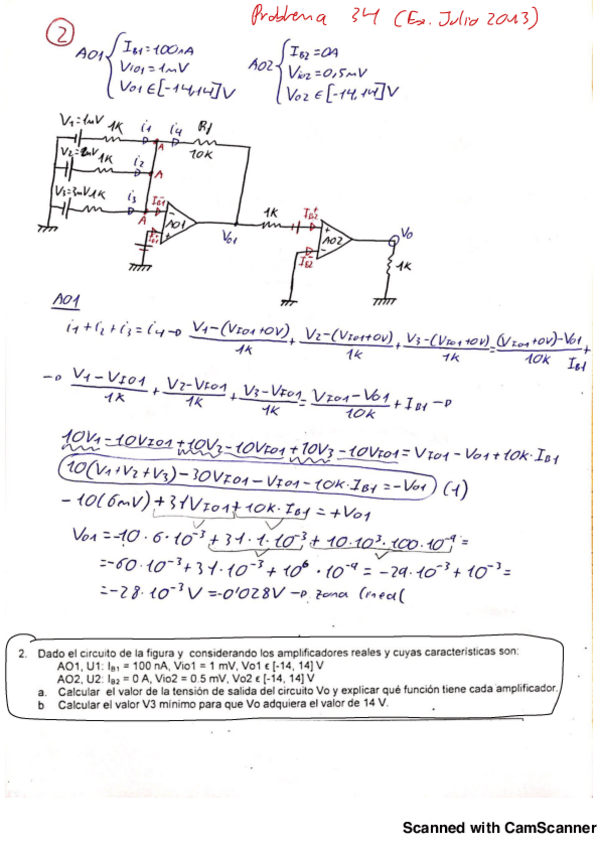 Problema 34 (Ex. Julio 2013)
2
AO1 { IB1=100nA
VIO1=1mV
VO1 ∈[-14,14]V
AO2 { IB2=0A
VIO2=0,5mV
VO2 ∈[-14,14]V
V1=1mV 1K i1 i4 Rf
A 10K
V2=2mV 1K i2
A
V3=3mV 1K i3
A IB1- - AO1 +
IB1+
VO1
1K IB2+ + AO2 -
IB2-
VO
1K
AO1
i1+i2+i3=i4 → V1-(VIO1+0V)/1K + V2-(VIO1+0V)/1K + V3-(VIO1+0V)/1K = (VIO1+0V)-VO1/10K + IB1
→ V1-VIO1/1K + V2-VIO1/1K + V3-VIO1/1K = VIO1-VO1/10K + IB1 →
10V1-10VIO1+10V3-10VIO1+10V3-10VIO1=VIO1-VO1+10K·IB1
10(V1+V2+V3)-30VIO1-VIO1-10K·IB1=-VO1 (1)
-10(6mV)+31VIO1+10K·IB1=+VO1
VO1=-10·6·10⁻³+31·1·10⁻³+10·10³·100·10⁻⁹=
=-60·10⁻³+31·10⁻³+10⁶·10⁻⁹=-29·10⁻³+10⁻³=
=-28·10⁻³V=-0'028V → zona lineal
2. Dado el circuito de la figura y considerando los amplificadores reales y cuyas características son:
AO1, U1: IB1 = 100 nA, Vio1 = 1 mV, Vo1 ε [-14, 14] V
AO2, U2: IB2 = 0 A, Vio2 = 0.5 mV, Vo2 ε [-14, 14] V
a. Calcular el valor de la tensión de salida del circuito Vo y explicar qué función tiene cada amplificador.
b Calcular el valor V3 mínimo para que Vo adquiera el valor de 14 V.
Scanned with CamScanner